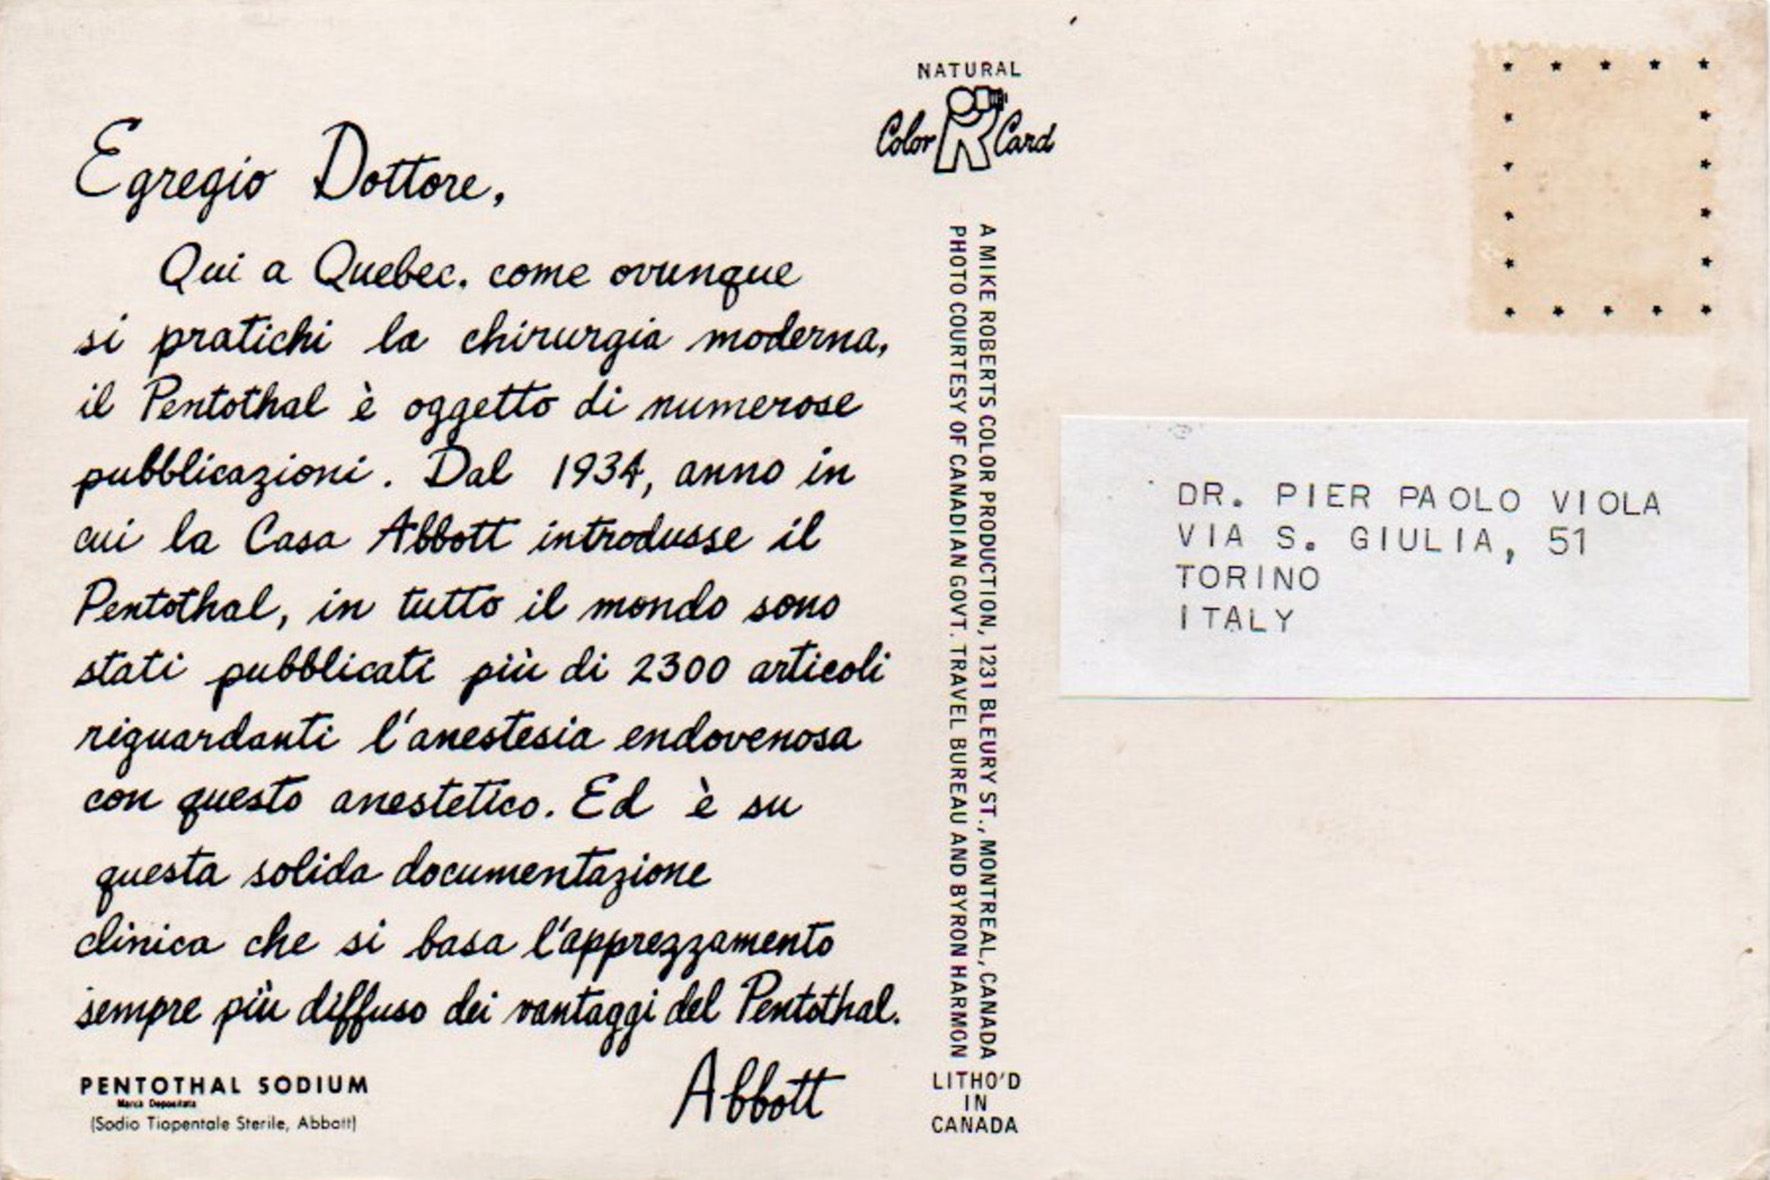 Egregio Dottore,
Qui a Quebec. come ovunque
si pratichi la chirurgia moderna,
il Pentothal è oggetto di numerose
pubblicazioni. Dal 1934, anno in
cui la Casa Abbott introdusse il
Pentothal, in tutto il mondo sono
stati pubblicati più di 2300 articoli
riguardanti l'anestesia endovenosa
con questo anestetico. Ed è su
questa solida documentazione
clinica che si basa l'apprezzamento
sempre più diffuso dei vantaggi del Pentothal.
Abbott
PENTOTHAL SODIUM
Marca Depositata
(Sodio Tiopentale Sterile, Abbott)
NATURAL
Color Card
A MIKE ROBERTS COLOR PRODUCTION, 1231 BLEURY ST., MONTREAL, CANADA
PHOTO COURTESY OF CANADIAN GOVT. TRAVEL BUREAU AND BYRON HARMON
LITHO'D
IN
CANADA
DR. PIER PAOLO VIOLA
VIA S. GIULIA, 51
TORINO
ITALY